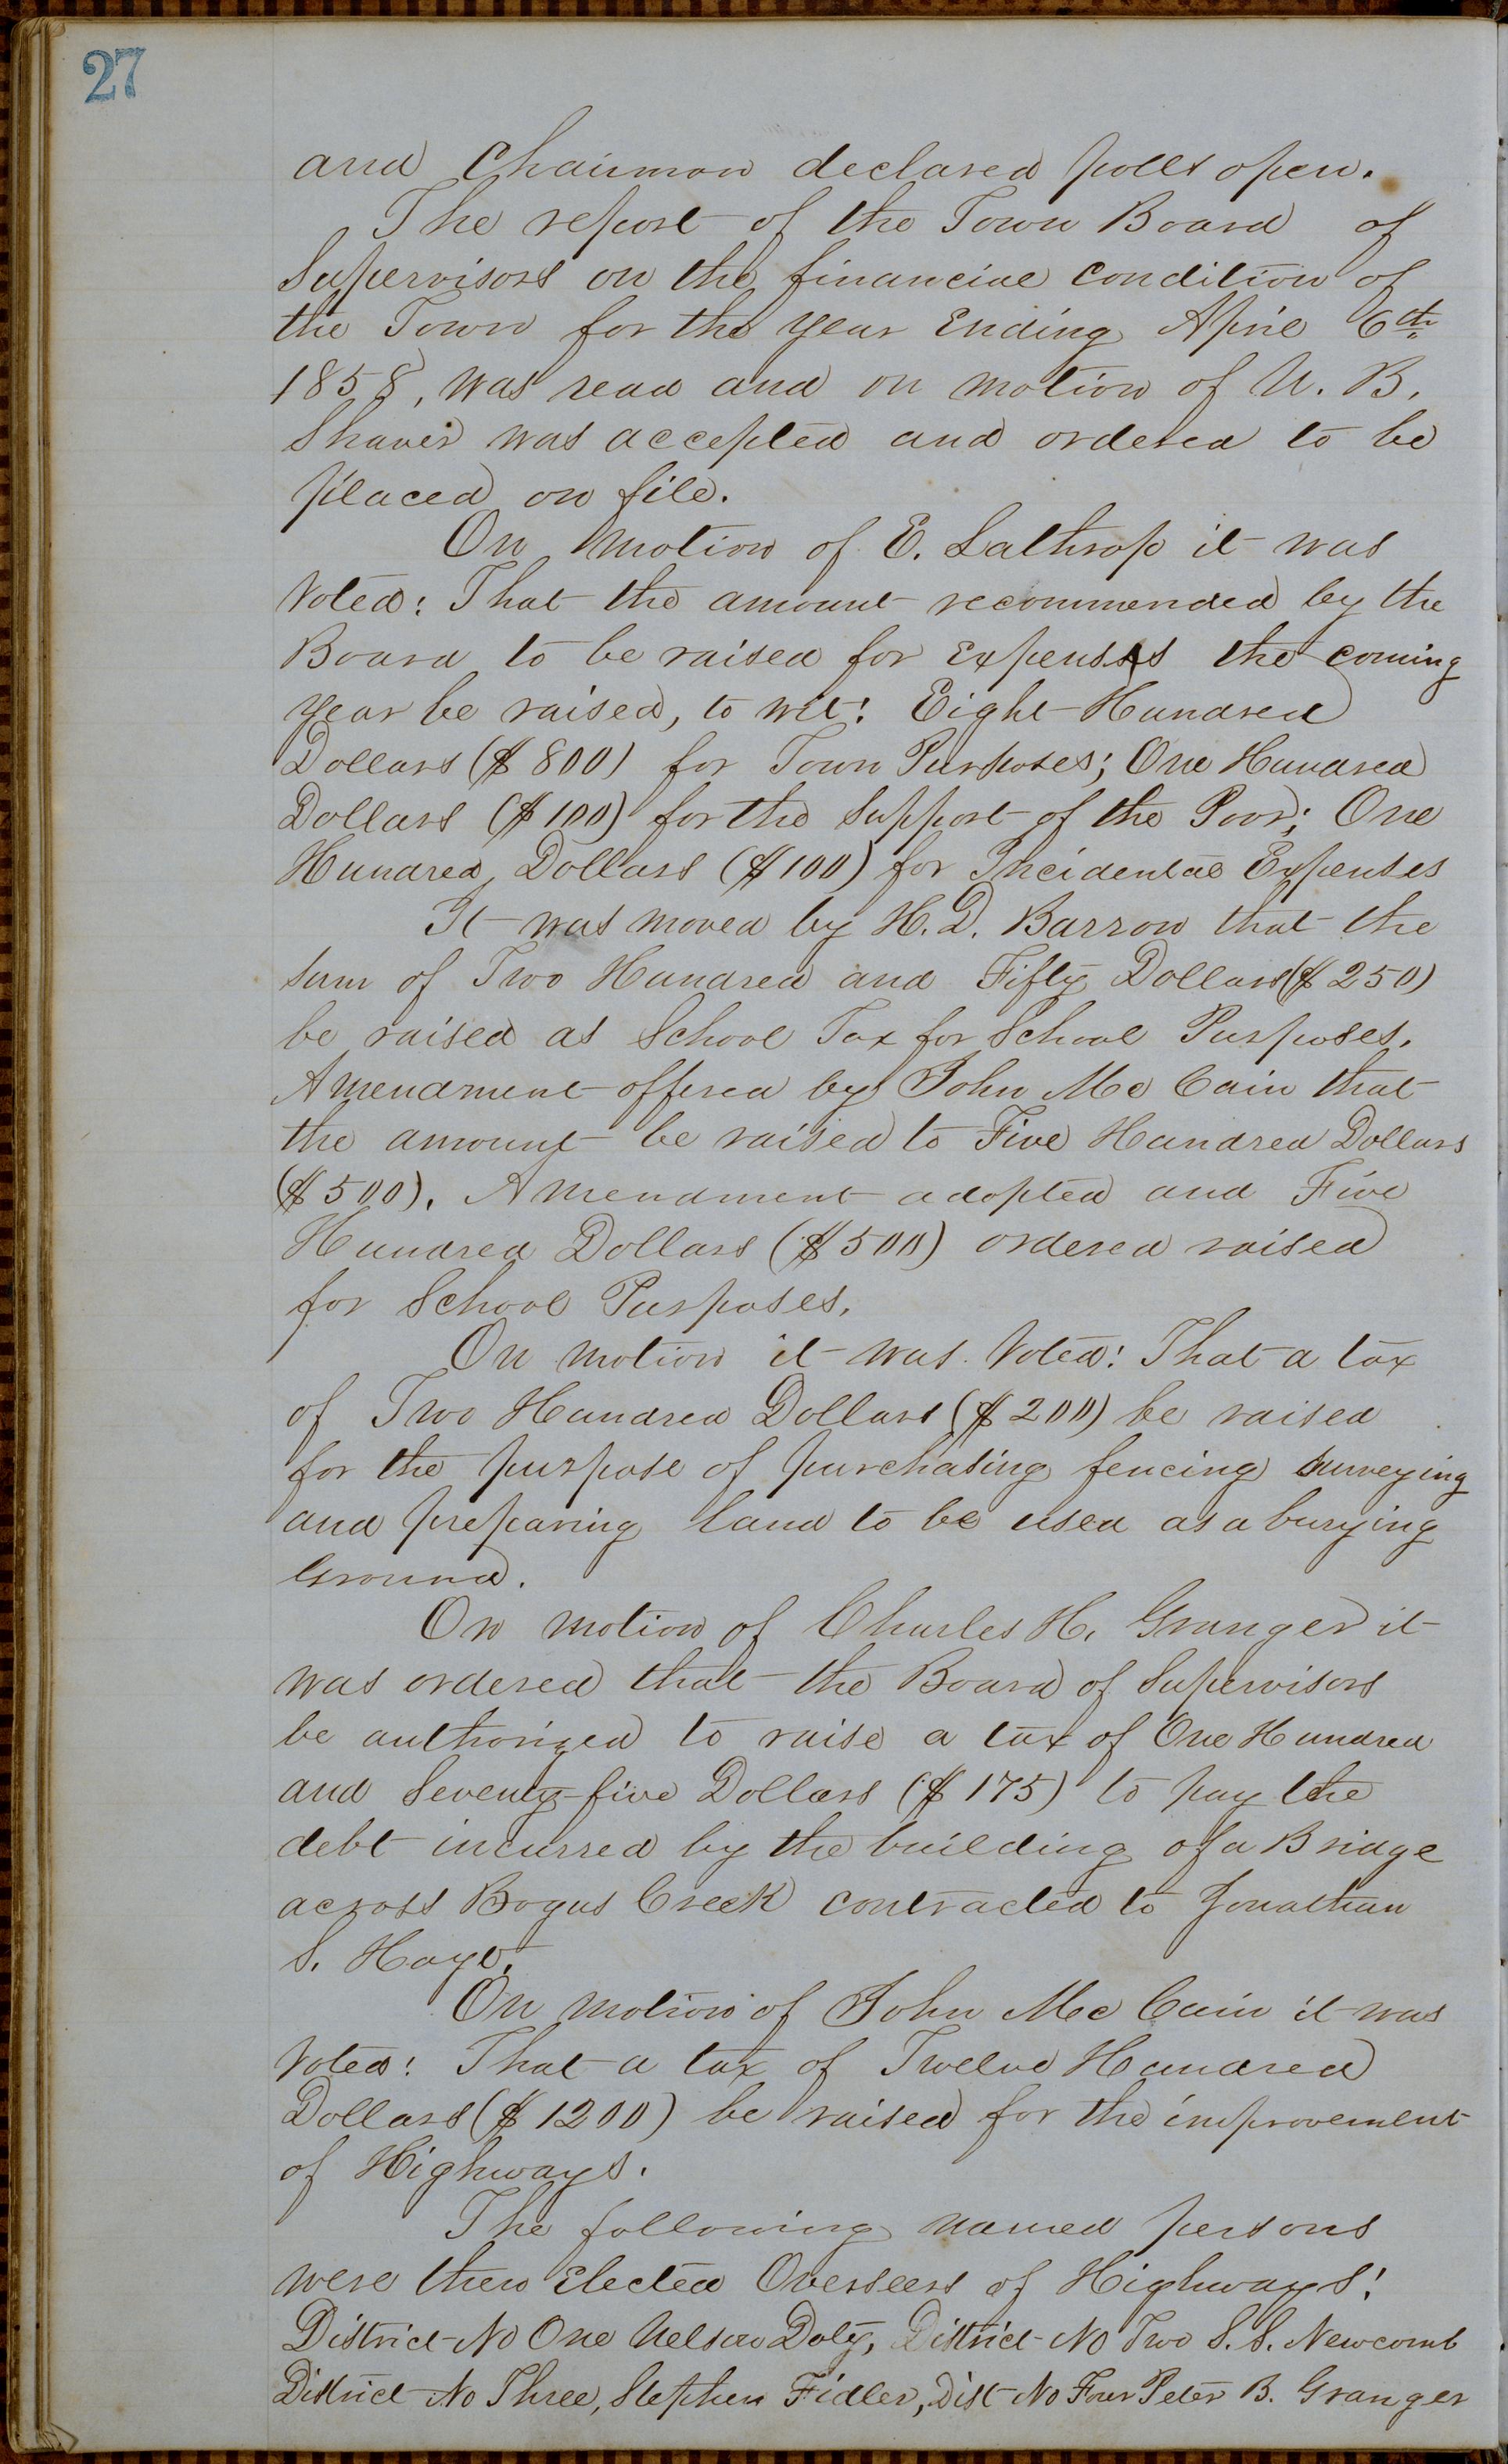 27
and Chairman declared polls open.
The report of the Town Board of
Supervisors on the financial condition of
the Town for the year Ending April 6th
1858, was read and on motion of U. B.
Shaver was accepted and ordered to be
placed on file.
On motion of E. Lathrop it was
Voted: That the amount recommended by the
Board to be raised for Expenses the coming
year be raised, to wit: Eight Hundred
Dollars ($800) for Town Purposes; One Hundred
Dollars ($100) for the Support of the Poor; One
Hundred Dollars ($100) for Incidental Expenses
It was moved by H. D. Barron that the
sum of Two Hundred and Fifty Dollars ($250)
be raised as School Tax for School Purposes.
Amendment offered by John Mc Cain that
the amount be raised to Five Hundred Dollars
($500). Amendment adopted and Five
Hundred Dollars ($500) ordered raised
for School Purposes.
On motion it was Voted: That a tax
of Two Hundred Dollars ($200) be raised
for the purpose of purchasing fencing surveying
and preparing land to be used as a burying
Ground.
On motion of Charles H. Granger it
was ordered that the Board of Supervisors
be authorized to raise a tax of One Hundred
and Seventy-five Dollars ($175) to pay the
debt incurred by the building of a Bridge
across Bogus Creek contracted to Jonathan
S. Hayt.
On motion of John Mc Cain it was
Voted: That a tax of Twelve Hundred
Dollars ($1200) be raised for the improvement
of Highways.
The following named persons
were then Elected Overseers of Highways:
District No One Nelson Doty, District No Two S. S. Newcomb
District No Three, Stephen Fidler, Dist No Four Peter B. Granger